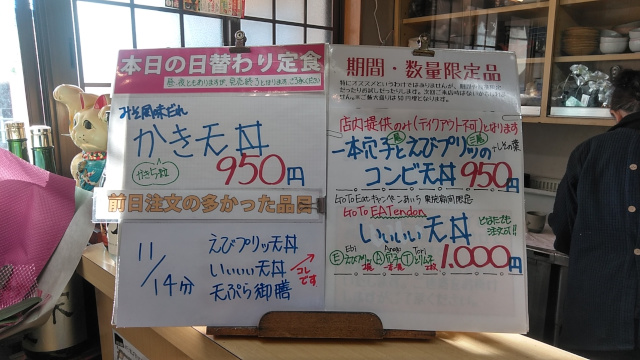 本日の日替わり定食
昼・夜ともありますが、完売終了とはります。ご了承ください
みそ風味だれ
かき天丼
かき5粒
950円
前日注文の多かった品目
11/14分
えびプリッ天丼
いいいい天丼
天ぷら御膳
コレです
期間・数量限定品
店内提供のみ(テイクアウト不可)とはります
一本穴子とえびプリッの
コンビ天丼 950円
GoTo EATendon
いいいい天丼
どなたでも
注文可!!
Ebi
Anago
Tori
1.000円